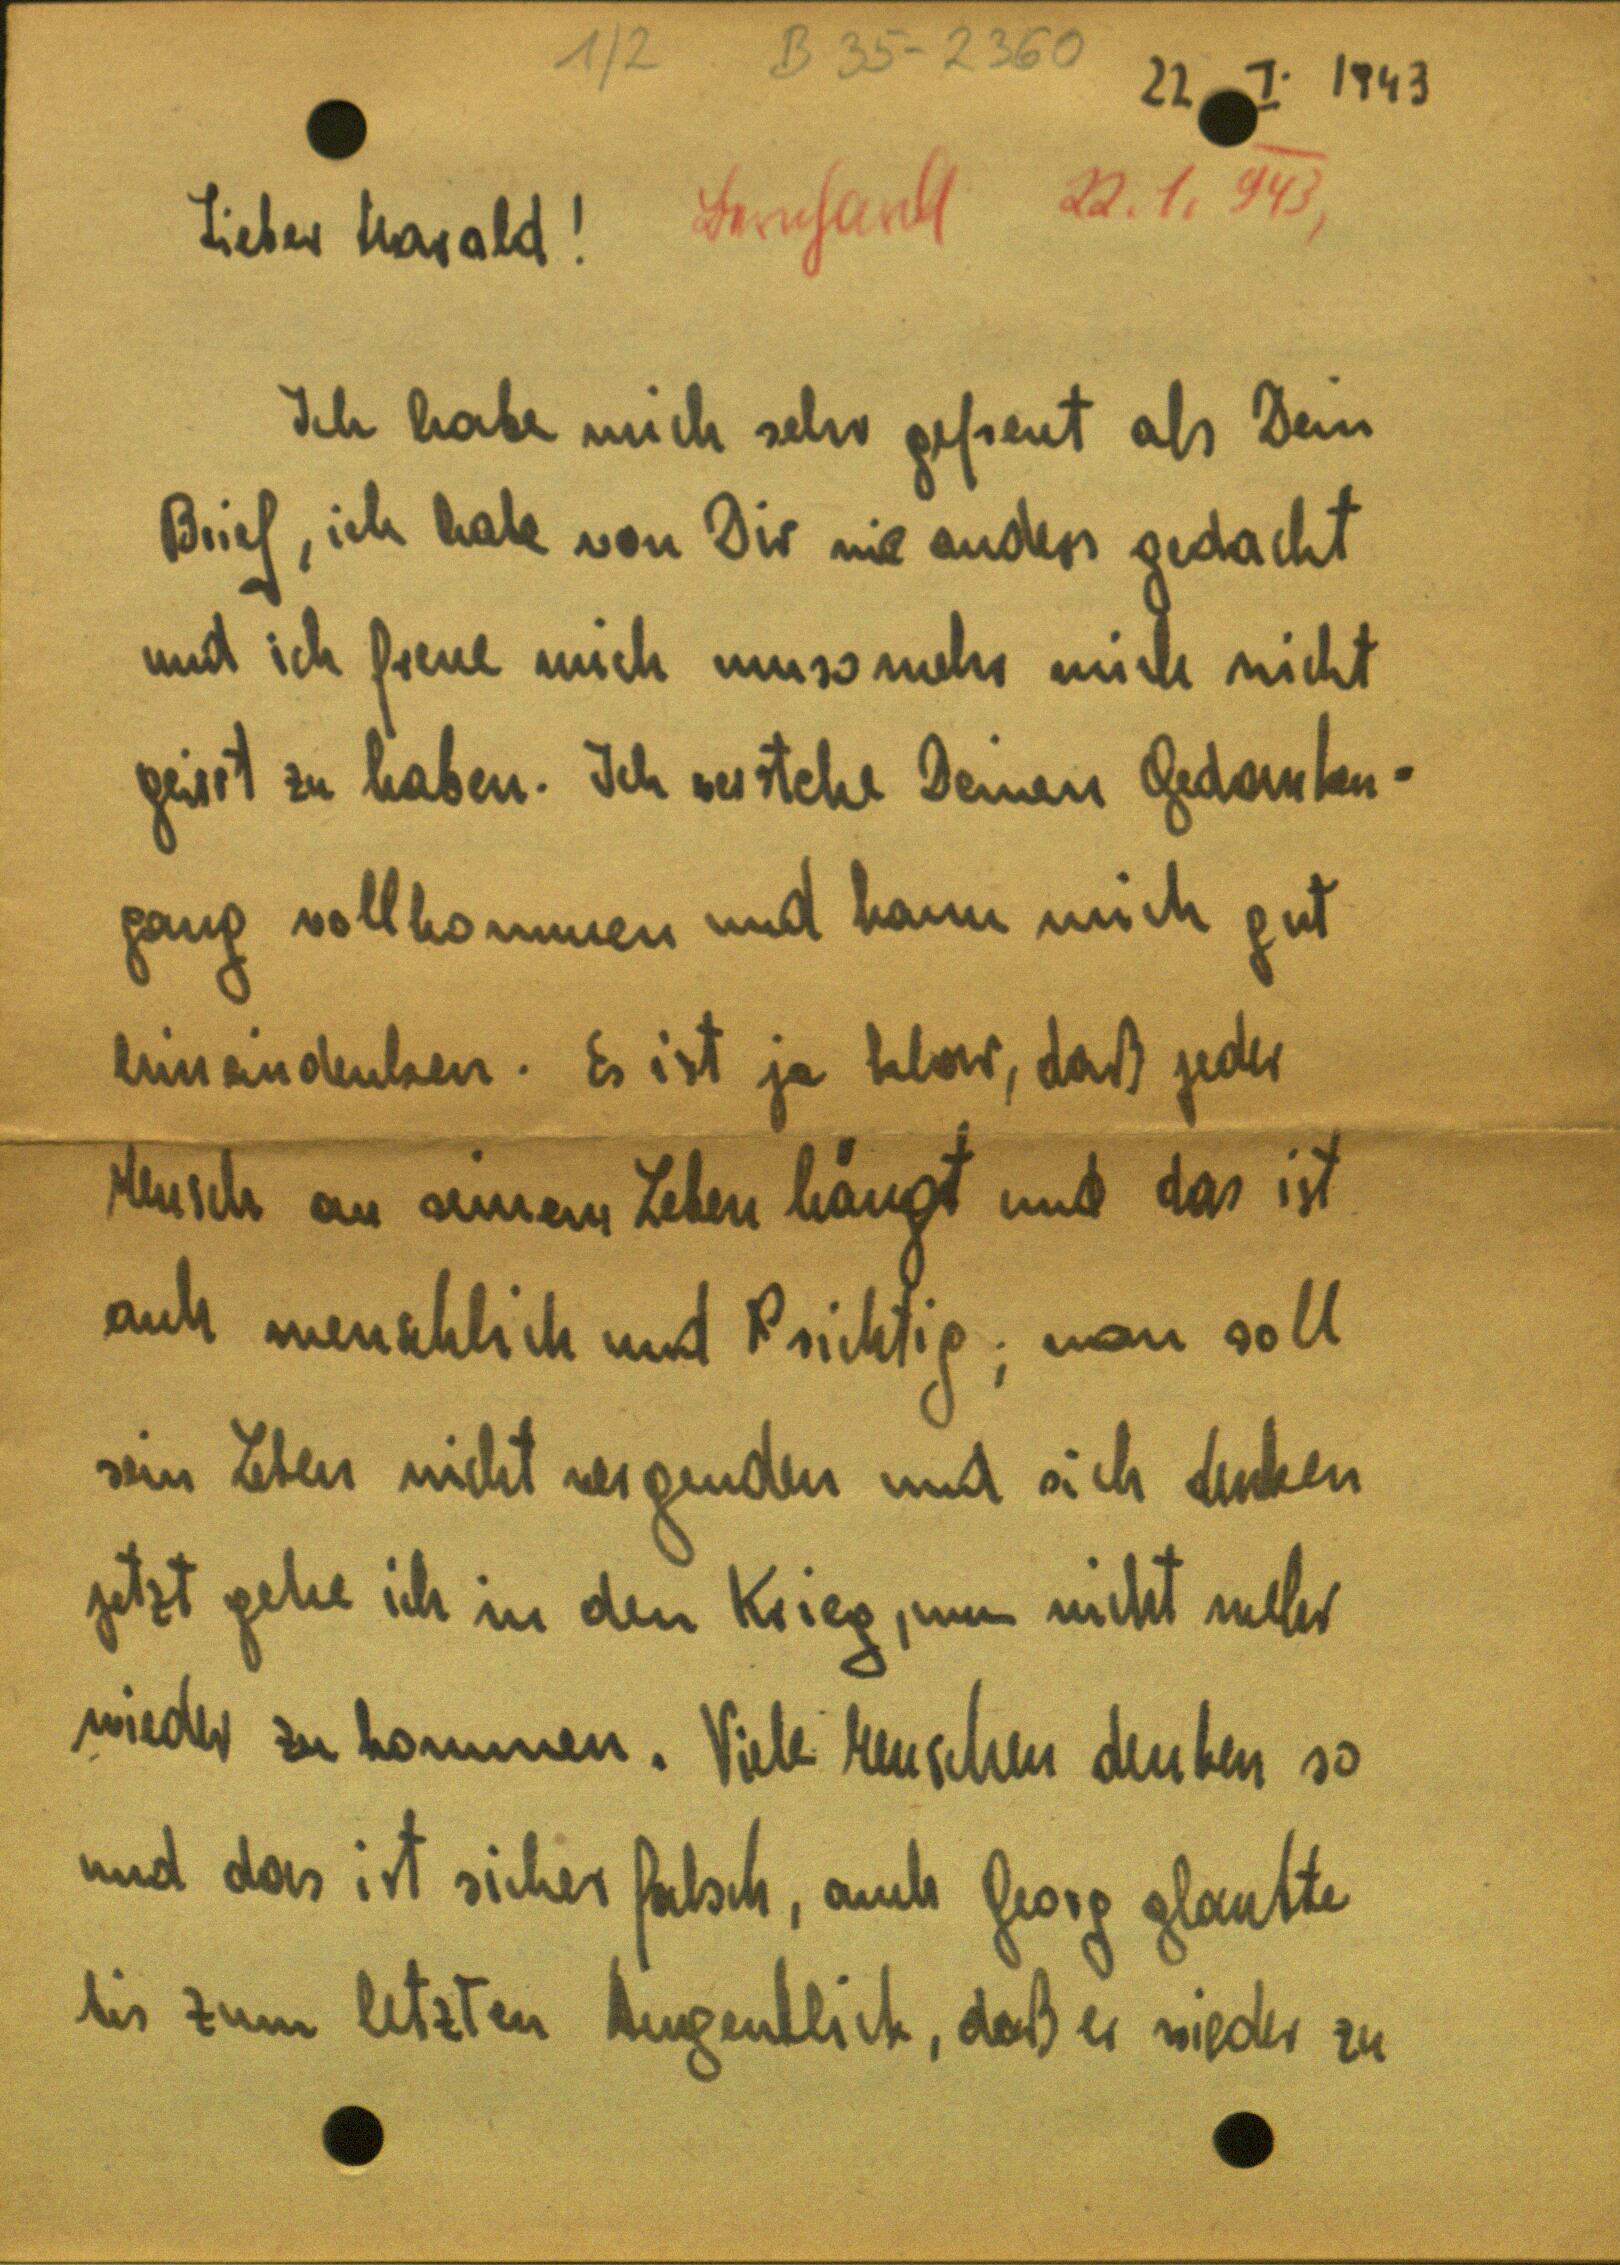 1/2 B 35-2360
22 I. 1943
Lieber Harald!
Bernhard 22.1.943,
Ich habe mich sehr gefreut als Dein
Brief, ich habe von Dir nie anders gedacht
und ich freue mich nunmehr mich nicht
geirrt zu haben. Ich verstehe Deinen Gedanken-
gang vollkommen und kann mich gut
hineindenken. Es ist ja klar, daß jeder
Mensch an seinem Leben hängt und das ist
auch menschlich und richtig; man soll
sein Leben nicht vergeuden und sich denken
jetzt gehe ich in den Krieg, um nicht mehr
wieder zu kommen. Viele Menschen denken so
und das ist sicher falsch, auch Georg glaubte
bis zum letzten Augenblick, daß er wieder zu